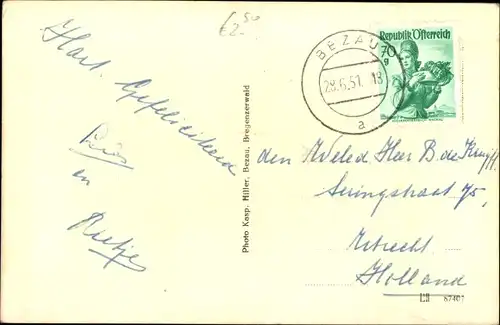 €2.50
Hart. Gefeliciteerd
Loes
en
Rietje
Photo Kasp. Hiller, Bezau, Bregenzerwald
BEZAU
28.6.51. 18
a
Republik Österreich
70
g
den WelEd Heer B. de Kruyff.
Seringstraat 75,
Utrecht.
Holland
87407